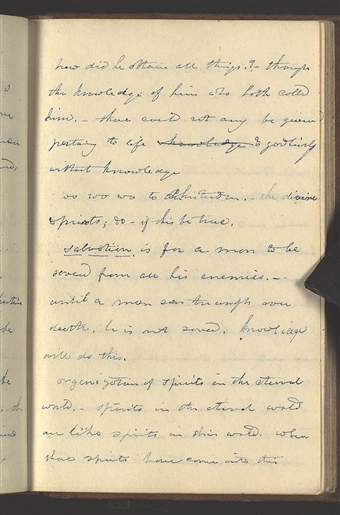 how did he obtain all things?- through
the knowledge of him who hath called
him. - there could not any be given
pertaining to life knowledge & godliness
without knowledge
wo wo wo to Christendom. - the divine
& priests, &c - if this be true.
salvation is for a man to be
saved from all his enemies. -
until a man can triumph over
death. he is not saved. knowledge
will do this.
organization of spirits in the eternal
world. - spirits in the eternal world
are like spirits in this world. when
those spirits have come into this